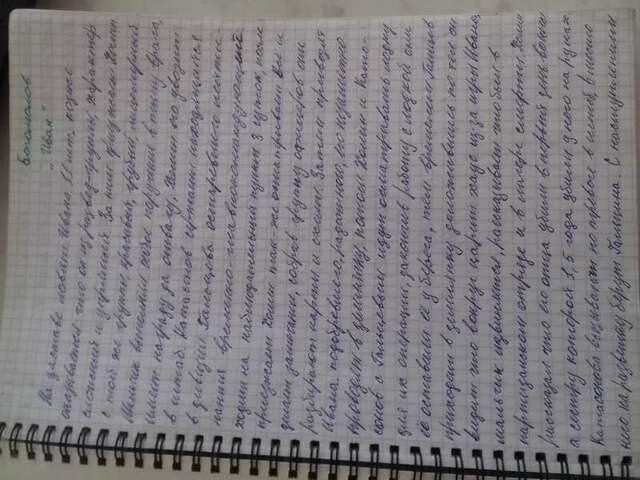 Богомолов
„Иван"
На заставе ловят Ивана 11 лет, позже
оказывается что он из развед-группы, характер
сложный и упрямый. За ним приезжает Холин
с той же группы, красивый, грубый,
Мальчик выполнял особое поручение в тылу врага,
имеет награду за отвагу, Холин его увозит
в штаб. Катасонов сержант находящийся
в дивизии Гальцева
временно-главнокомандующего
ходит на наблюдательный пункт 3 суток, после
приезжает Холин так-же осматривает всё и
делает замечания, собрав группу офицеров они
разбирают карты и схемы. Затем привозят
Ивана. подобревшего, радостного, его незаметно
проводят в землянку, потом Холин и Ката-
сонов с Гальцевым идут осматривать лодку
для их операции, закончив работу с лодкой они
её оставили её у берега, тем временем Гальцев
приходит в землянку доложившись по тел он
видит что вокруг царит хаус из за игры Ивана,
мальчик извиняется, рассказывает что был в
партизанском отряде и в лагере смерти. Холин
рассказал что его отца убили в первый день войны
а сестру которой 1,5 года убили у него на руках.
Катасонова вызывают по тревоге в штаб, вместо
него на разведку берут Гальцина. С наступлением